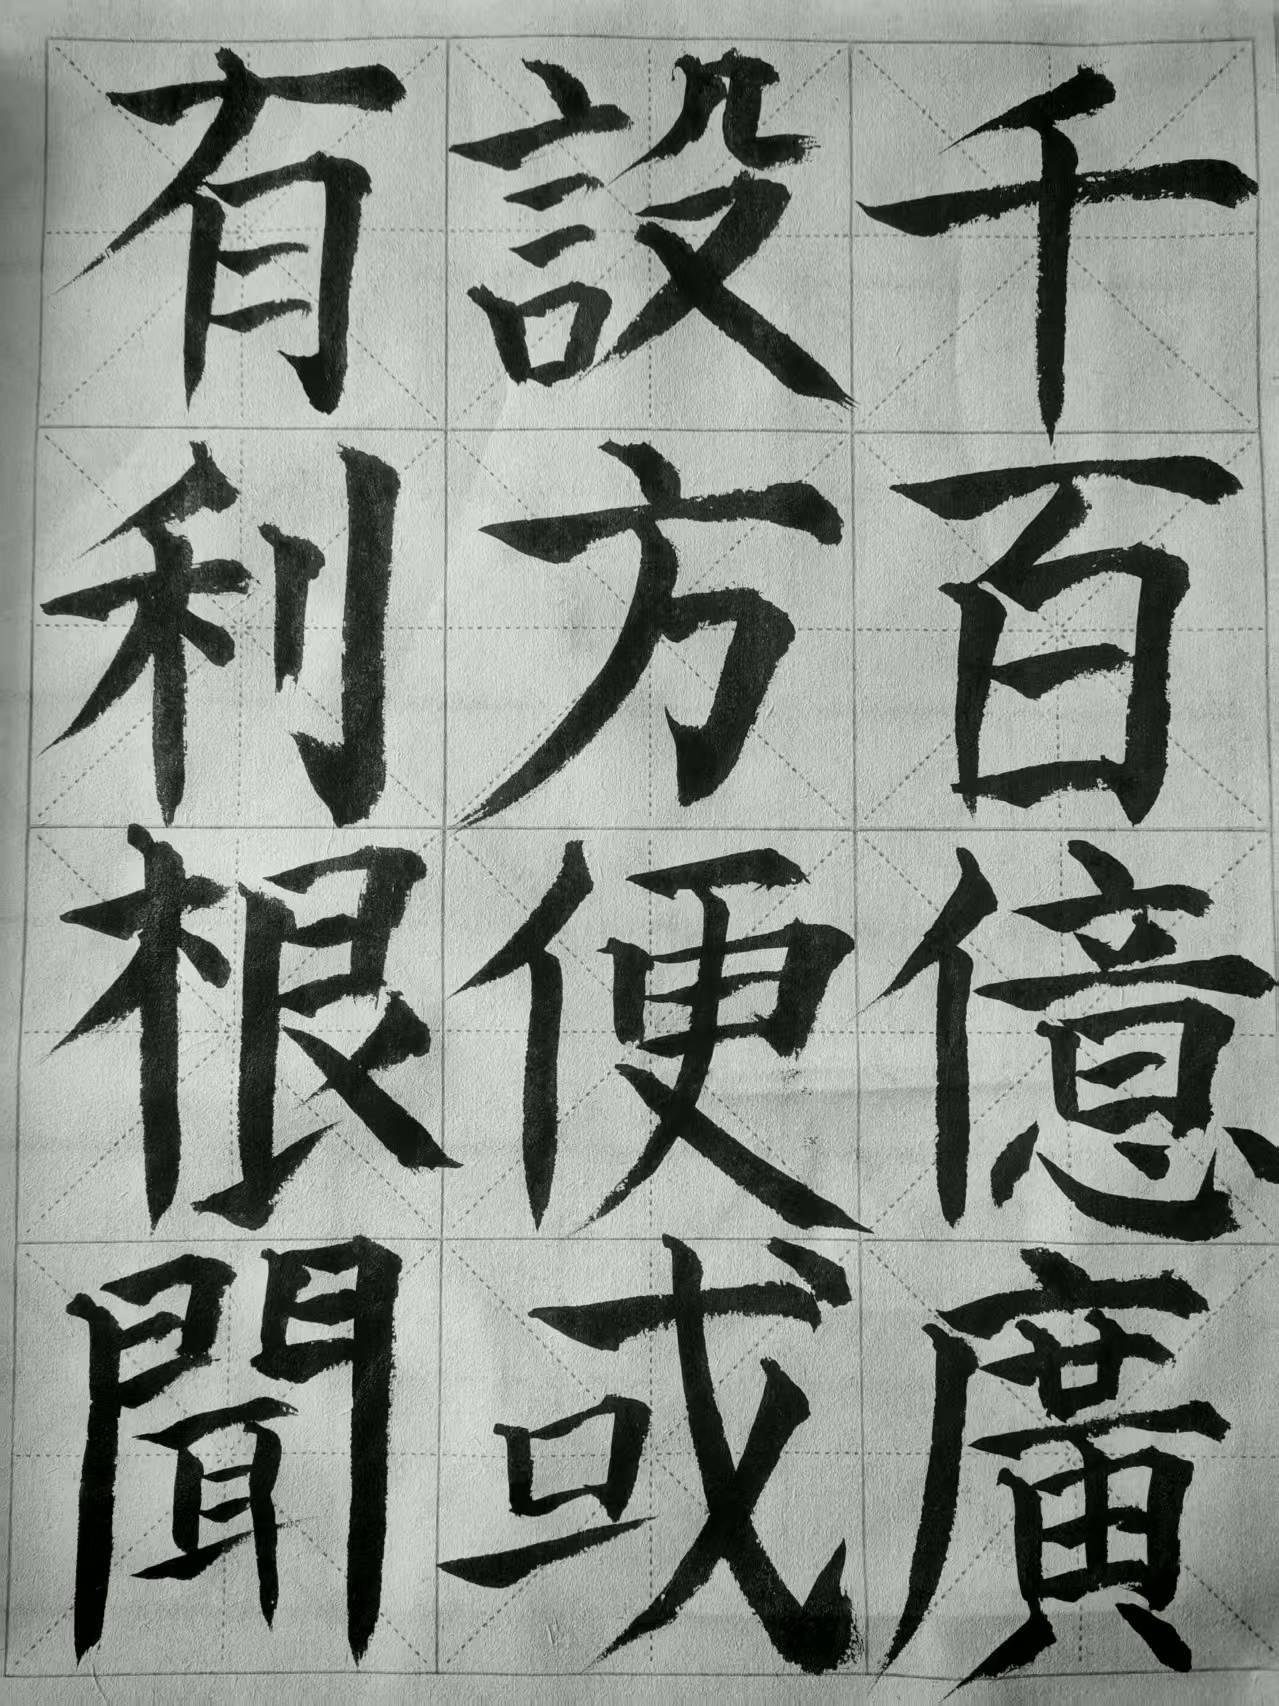 千百億廣
設方便或
有利根聞